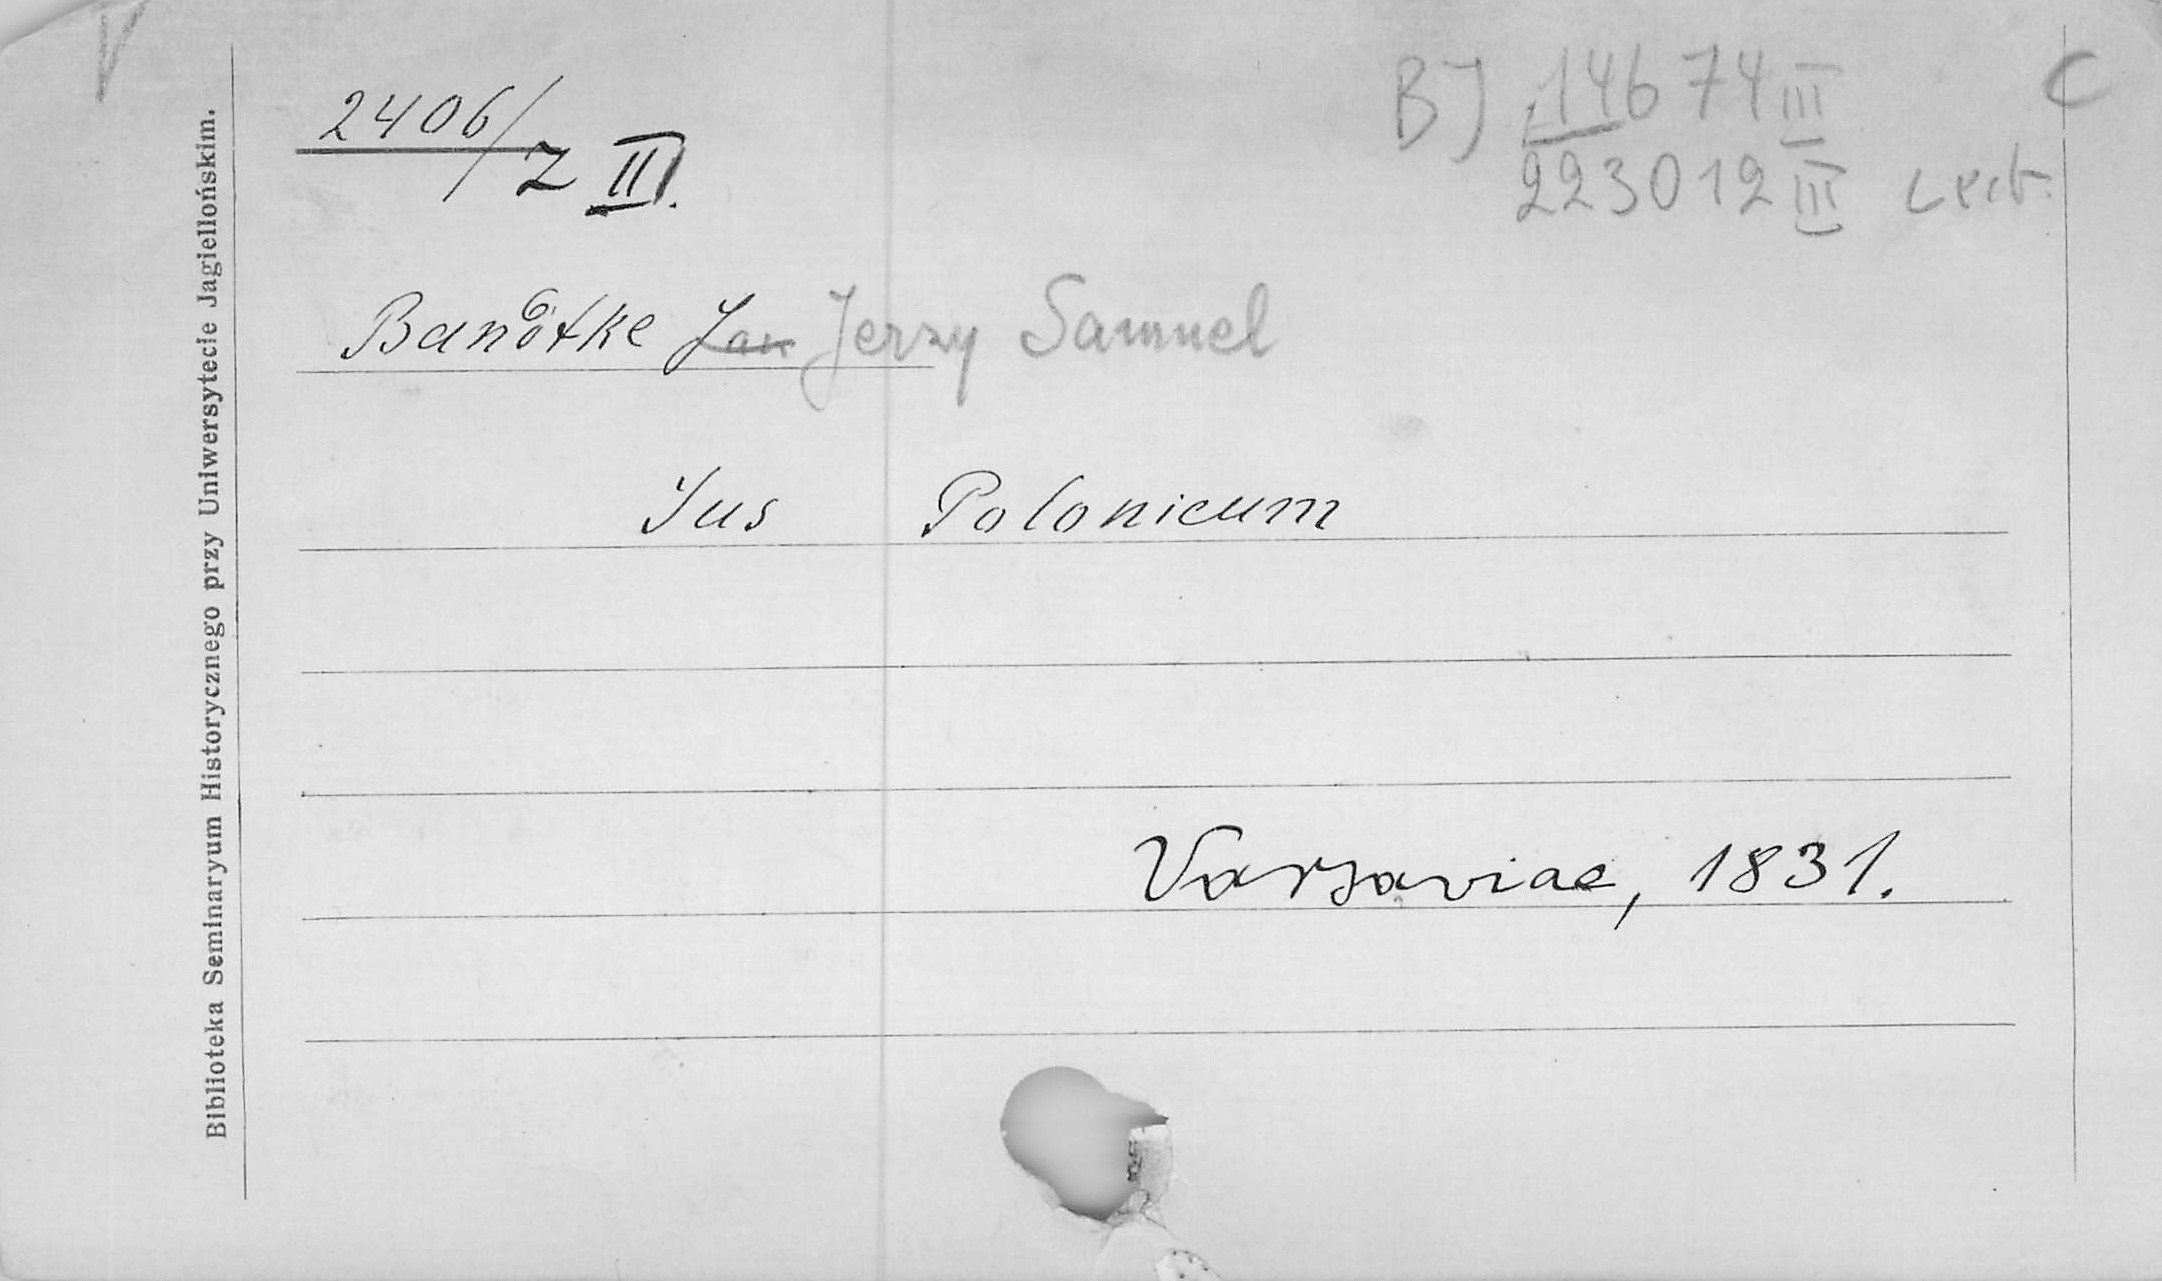 V
2406/Z III.
BJ 14674 III
C
223012 III Lect.
Bandtke Jan Jerzy Samuel
Jus Polonicum
Varsaviae, 1831.
Biblioteka Seminaryum Historycznego przy Uniwersytecie Jagiellońskim.